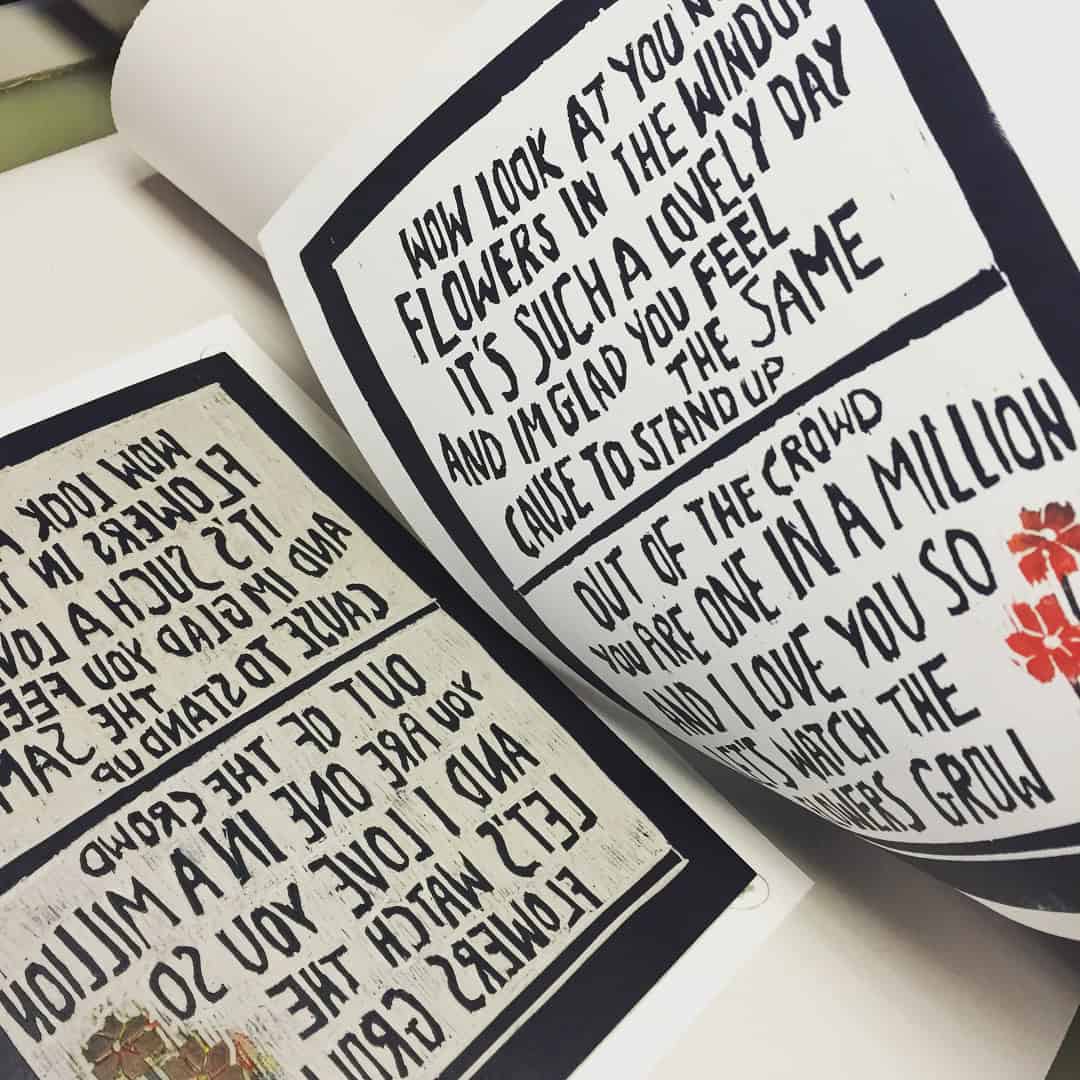 WOW LOOK AT YOU
FLOWERS IN THE WINDOW
IT'S SUCH A LOVELY DAY
AND IM GLAD YOU FEEL
THE SAME
CAUSE TO STAND UP
OUT OF THE CROWD
YOU ARE ONE IN A MILLION
AND I LOVE YOU SO
LET'S WATCH THE
FLOWERS GROW
WOW LOOK
FLOWERS IN
IT'S SUCH A
AND IM GLAD YOU
THE
CAUSE TO STAND UP
OUT OF THE CROWD
YOU ARE ONE IN A MILLION
AND I LOVE YOU SO
LET'S WATCH THE
FLOWERS